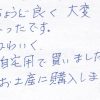 ちょうど良く 大変
ったです。
かわいく、
自宅用で買いました
お土産に購入しま